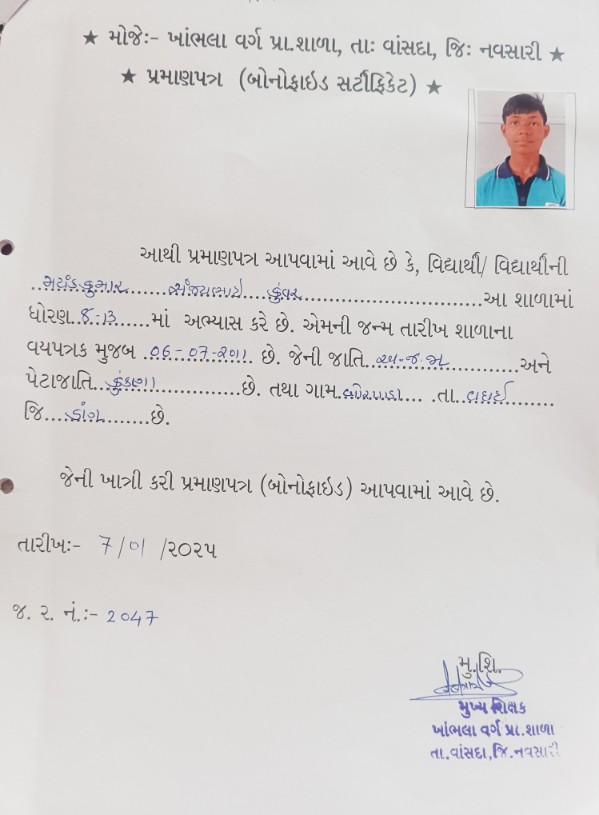 ★ મોજેઃ- ખાંભલા વર્ગ પ્રા.શાળા, તાઃ વાંસદા, જિઃ નવસારી ★
★ પ્રમાણપત્ર (બોનોફાઇડ સર્ટીફિકેટ) ★
આથી પ્રમાણપત્ર આપવામાં આવે છે કે, વિદ્યાર્થી/ વિદ્યાર્થીની
મયંકકુમાર સંજયભાઇ કુંવર આ શાળામાં
ધોરણ 8-B માં અભ્યાસ કરે છે. એમની જન્મ તારીખ શાળાના
વયપત્રક મુજબ 06-07-૨૦૧૧ છે. જેની જાતિ અ.જ.જા અને
પેટાજાતિ કુંકણા છે. તથા ગામ બોરપાડા તા. વઘઈ
જિ ડાંગ છે.
જેની ખાત્રી કરી પ્રમાણપત્ર (બોનોફાઇડ) આપવામાં આવે છે.
તારીખઃ- 7/01/૨૦૨૫
જ. ર. નં.:- 2047
મુ.શિ.
મુખ્ય શિક્ષક
ખાંભલા વર્ગ પ્રા.શાળા
તા.વાંસદા,જિ.નવસારી